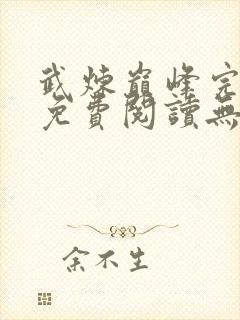 武煉巔峰完
免費閱讀無
余不生